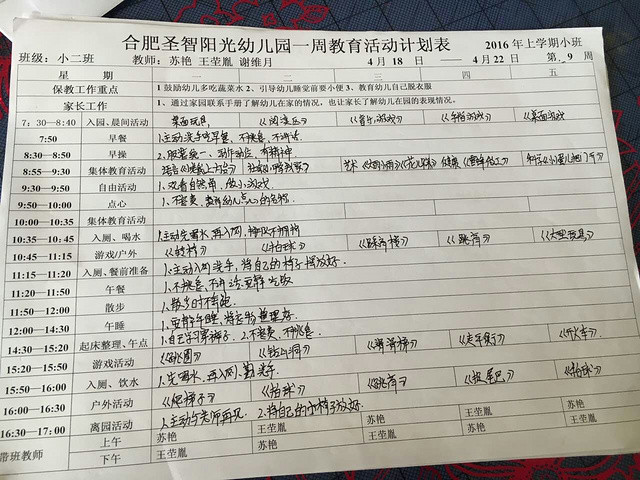 合肥圣智阳光幼儿园一周教育活动计划表
班级：小二班 教师：苏艳 王莹胤 谢维月 2016年上学期小班
4月18日——4月22日 第9周
星期 一 二 三 四 五
保教工作重点 1 鼓励幼儿多吃蔬菜水 2、引导幼儿睡觉前要小便 3、教育幼儿自己脱衣服
家长工作 1、通过家园联系手册了解幼儿在家的情况，也让家长了解幼儿在园的表现情况。
7：30—8:40 入园、晨间活动 桌面玩具 《阅读区》 《音乐游戏》 《手指游戏》 《桌面游戏》
7:50 早餐 1.主动洗手吃早餐、不挑食、不讲话.
8:30—8:50 早操 2.服装统一、动作到位、有精神
8:55—9:30 集体教育活动
9:30—9:50 自由活动 1、观看自然角，做小游戏.
9:50—10:00 点心 1、不挑食、
10:00—10:35 集体教育活动
10:35—10：45 入厕、喝水 1.主动先喝水，再入厕，排队不拥挤
10:45—11:15 游戏/户外 《转椅》 《拍球》 《跷跷板》 《跳高》 《大型玩具》
11:15—11:20 入厕、餐前准备 1、主动入厕洗手，将自己的椅子摆放好.
11:20—11:50 午餐 1、不挑食、不讲话、安静吃饭
11:50—12:00 散步 1、散步时不奔跑.
12:00—14:30 午睡 1、安静午睡、将衣物整理好.
14:30—15:20 起床整理、午点 1.自己学习穿裤子. 2、不浪费、不挑食.
15:20—15:50 游戏活动 《跳圈》 《钻山洞》 《滑滑梯》 《走平衡》 《开火车》
15:50—16:00 入厕、饮水 1.先喝水、再入厕、勤洗手.
16:00—16:30 户外活动 《爬梯子》 《拍球》 《跳高》 《揪尾巴》 《拍球》
16:30—17:00 离园活动 1.主动与老师再见. 2.将自己的小椅子放好.
带班教师 上午 苏艳 王莹胤 苏艳 王莹胤 苏艳
下午 王莹胤 苏艳 王莹胤 苏艳 王莹胤